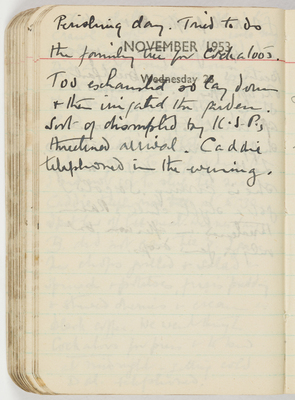 Perishing day. Tried to do
NOVEMBER 1953
the family tree for
Wednesday 25
Too exhausted so lay down
& then irrigated the garden.
Sort of disrupted by K.S.P's
threatened arrival. Caddie
telephoned in the evening.